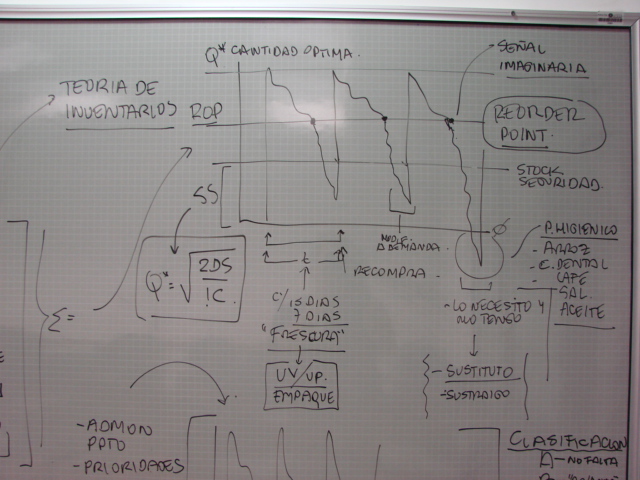 Q* CANTIDAD OPTIMA.
SEÑAL
IMAGINARIA
TEORIA DE
INVENTARIOS
ROP
REORDER
POINT.
SS
STOCK
SEGURIDAD.
Q* = √2DS/IC.
DEMANDA
t
RECOMPRA
Ø
P.HIGIENICO
- ARROZ
- C. DENTAL
- CAFE
SAL.
ACEITE
C/15 DIAS
7 DIAS
"FRESCURA"
- LO NECESITO Y
NO TENGO
Σ=
UV/UP.
EMPAQUE
- SUSTITUTO
- SUSTRAIGO
- ADMON
PPTO
- PRIORIDADES
CLASIFICACION
A - NO FALTA